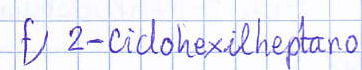 f) 2-Ciclohexilheptano